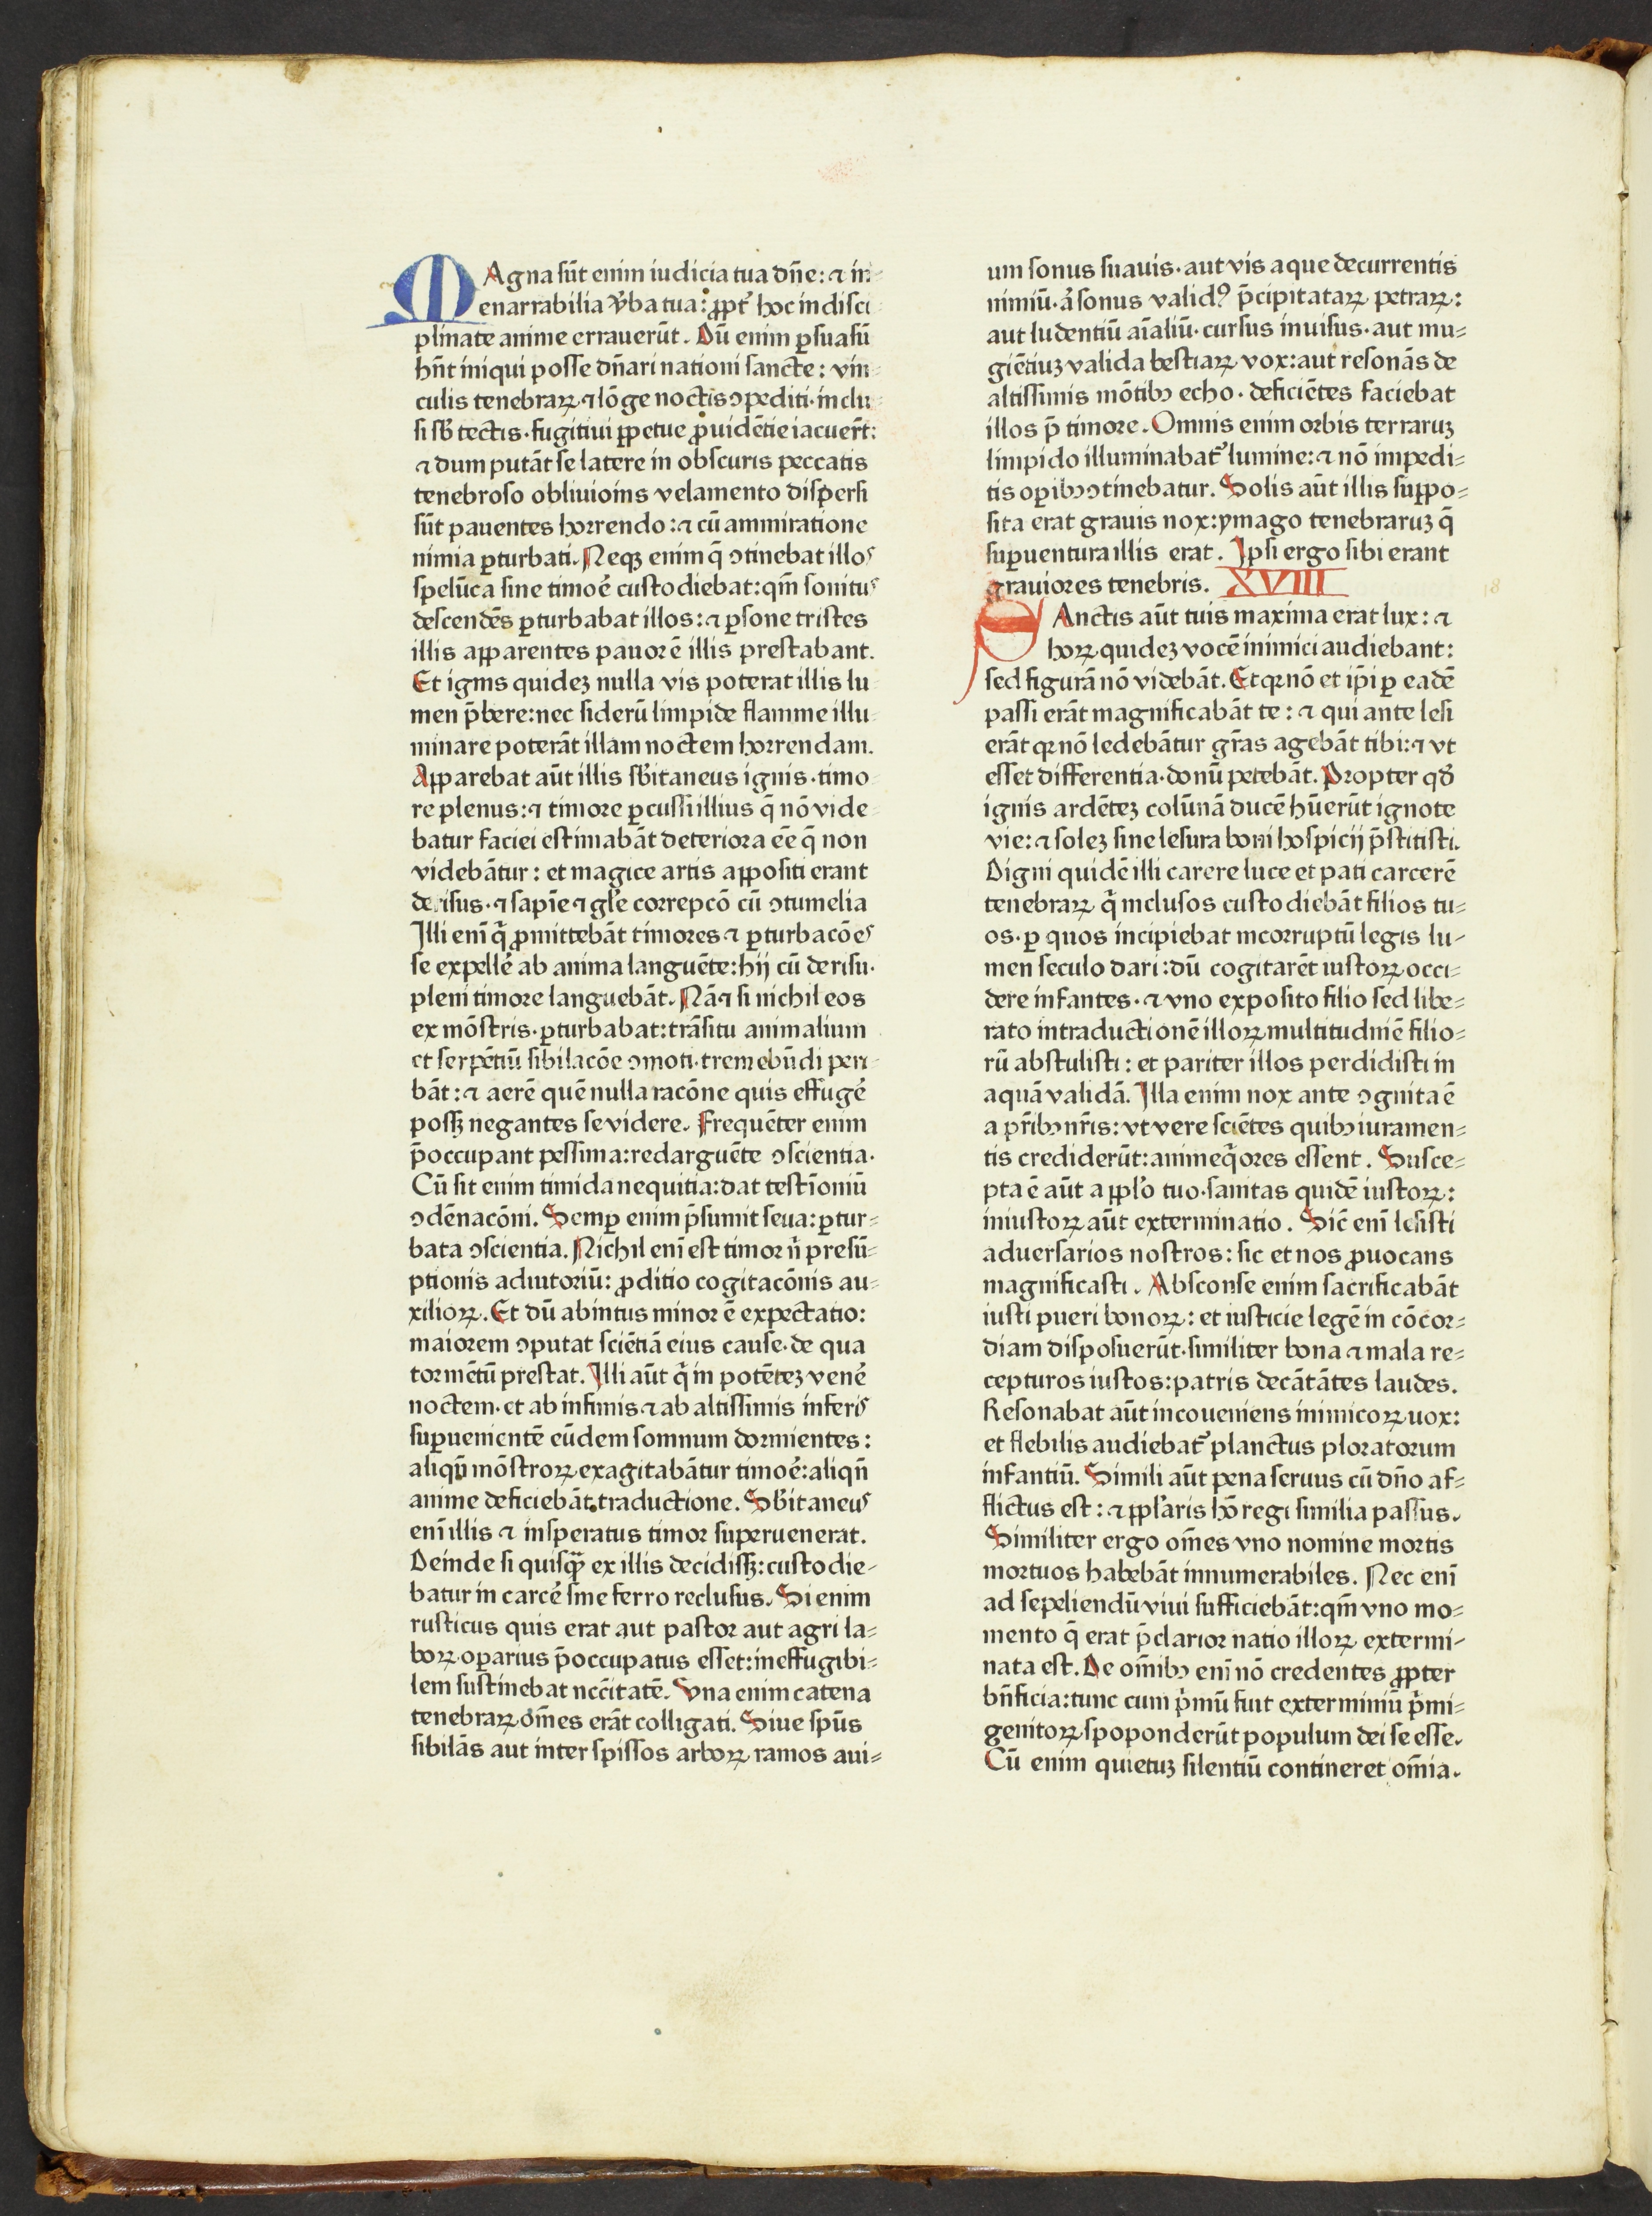 MAgna sūt enim iudicia tua dñe: ⁊ in-
enarrabilia v̄ba tua: ꝓpt̉ hoc indisci
plinate anime erraverūt. Dū enim ꝑsuasū
hn̄t iniqui posse dn̄ari nationi sancte: vin-
culis tenebraꝝ ⁊ lōge noctis ↄpediti· inclu-
si sb̄ tectis· fugitiui ꝑpetue ꝓuidētie iacuer̄t:
⁊ dum putāt se latere in obscuris peccatis
tenebroso obliuioīns velamento dispersi
sūt pauentes horrendo: ⁊ cū ammiratione
nimia ꝑturbati. Neqꝫ enim q̄ ↄtinebat illos
spelūca sine timoē custodiebat: qm̄ sonitus
descendēs ꝑturbabat illos: ⁊ ꝑsone tristes
illis apparentes pauorē illis prestabant.
Et ignis quideꝫ nulla vis poterat illis lu
men p̄bere: nec siderū limpide flamme illu
minare poterāt illam noctem horrendam.
Apparebat aūt illis sb̄itaneus ignis· timo
re plenus: ⁊ timore ꝑcussi illius q̄ nō vide
batur faciei estimabāt deteriora eē q̄ non
videbāntur: et magice artis appositi erant
derisus· ⁊ sapīe ⁊ gl̄e correpcō cū ↄtumelia
Illi enī q̄ ꝓmittebāt timores ⁊ ꝑturbacōes
se expellē ab anima languēte: hij cū derisu·
pleni timore languebāt. Nā ⁊ si nichil eos
ex mōstris· ꝑturbabat: trāsitu animalium
et serpētiū sibilacōe ↄmoti· tremebūdi peri-
bāt: ⁊ aerē quē nulla racōne quis effugē
possꝫ negantes se videre. Frequēter enim
p̄occupant pessima: redarguēte ↄscientia.
Cū sit enim timida nequitia: dat testīoniū
ↄdēnacōni. Semꝑ enim p̄sumit seua: ꝑtur-
bata ↄscientia. Nichil enī est timor n̄ presū-
ptionis adiutoriū: ꝓditio cogitacōnis au-
xilioꝝ. Et dū abintus minor ē expectatio:
maiorem ↄputat sciētiā eius cause· de qua
tormētū prestat. Illi aūt q̄ in potēteꝫ venē
noctem· et ab infimis ⁊ ab altissimis inferis
suꝑuenientē eūdem somnum dormientes:
aliqn̄ mōstroꝝ exagitabāntur timoē: aliqn̄
anime deficiebāt traductione. Sb̄itaneus
enī illis ⁊ insperatus timor superuenerat.
Deinde si quisqꝫ̄ ex illis decidissꝫ: custodie-
batur in carcē sine ferro reclusus. Si enim
rusticus quis erat aut pastor aut agri la-
boꝝ oꝑarius p̄occupatus esset: ineffugibi-
lem sustinebat nccītatē. Vna enim catena
tenebraꝝ om̄es erāt colligati. Siue spūs
sibilās aut inter spissos arboꝝ ramos aui-
um sonus suauis· aut vis aque decurrentis
nimiū· ā sonus validꝰ p̄cipitataꝝ petraꝝ:
aut ludentiū aīaliū· cursus inuisus· aut mu-
giētiuꝫ valida bestiaꝝ vox: aut resonās de
altissimis mōtibꝫ echo· deficiētes faciebat
illos p̄ timore. Omnis enim orbis terraruꝫ
limpido illuminabat̉ lumine: ⁊ nō impedi-
tis oꝑibꝫ ↄtinebatur. Solis aūt illis suppo-
sita erat grauis nox: ymago tenebraruꝫ q̄
suꝑuentura illis erat. Ipsi ergo sibi erant
grauiores tenebris. XVIII 18
SAnctis aūt tuis maxima erat lux: ⁊
hoꝝ quideꝫ vocē inimici audiebant:
sed figurā nō videbāt. Et qꝛ nō et ip̄i ꝑ eadē
passi erāt magnificabāt te: ⁊ qui ante lesi
erāt qꝛ nō ledebāntur gr̄as agebāt tibi: ⁊ vt
esset differentia· donū petebāt. Propter qd̄
ignis ardēteꝫ colūnā ducē hūerūt ignote
vie: ⁊ soleꝫ sine lesura boni hospicij p̄stitisti.
Digni quidē illi carere luce et pati carcerē
tenebraꝝ q̄ inclusos custodiebāt filios tu-
os· ꝑ quos incipiebat incorruptū legis lu-
men seculo dari: dū cogitarēt iustoꝝ occi-
dere infantes· ⁊ vno exposito filio sed libe-
rato intraductionē illoꝝ multitudinē filio-
rū abstulisti: et pariter illos perdidisti in
aquā validā. Illa enim nox ante ↄgnita ē
a pr̄ibꝫ nr̄is: vt vere sciētes quibꝫ iuramen-
tis crediderūt: anime q̄ores essent. Susce-
pta ē aūt a ppl̄o tuo· sanitas quidē iustoꝝ:
iniustoꝝ aūt exterminatio. Sic̄ enī lesisti
aduersarios nostros: sic et nos ꝓuocans
magnificasti. Absconse enim sacrificabāt
iusti pueri bonoꝝ: et iusticie legē in cōcor-
diam disposuerūt· similiter bona ⁊ mala re-
cepturos iustos: patris decātātes laudes.
Resonabat aūt incoueniens inimicoꝝ uox:
et flebilis audiebat̉ planctus ploratorum
infantiū. Simili aūt pena seruus cū dn̄o af-
flictus est: ⁊ ppl̄aris hō regi similia passus.
Similiter ergo om̄es vno nomine mortis
mortuos habebāt innumerabiles. Nec enī
ad sepeliendū viui sufficiebāt: qm̄ vno mo-
mento q̄ erat p̄clarior natio illoꝝ extermi-
nata est. De om̄ibꝫ enī nō credentes ꝓpter
bn̄ficia: tunc cum p̄mū fuit exterminiū p̄mi-
genitoꝝ spoponderūt populum dei se esse.
Cū enim quietuꝫ silentiū contineret om̄ia.